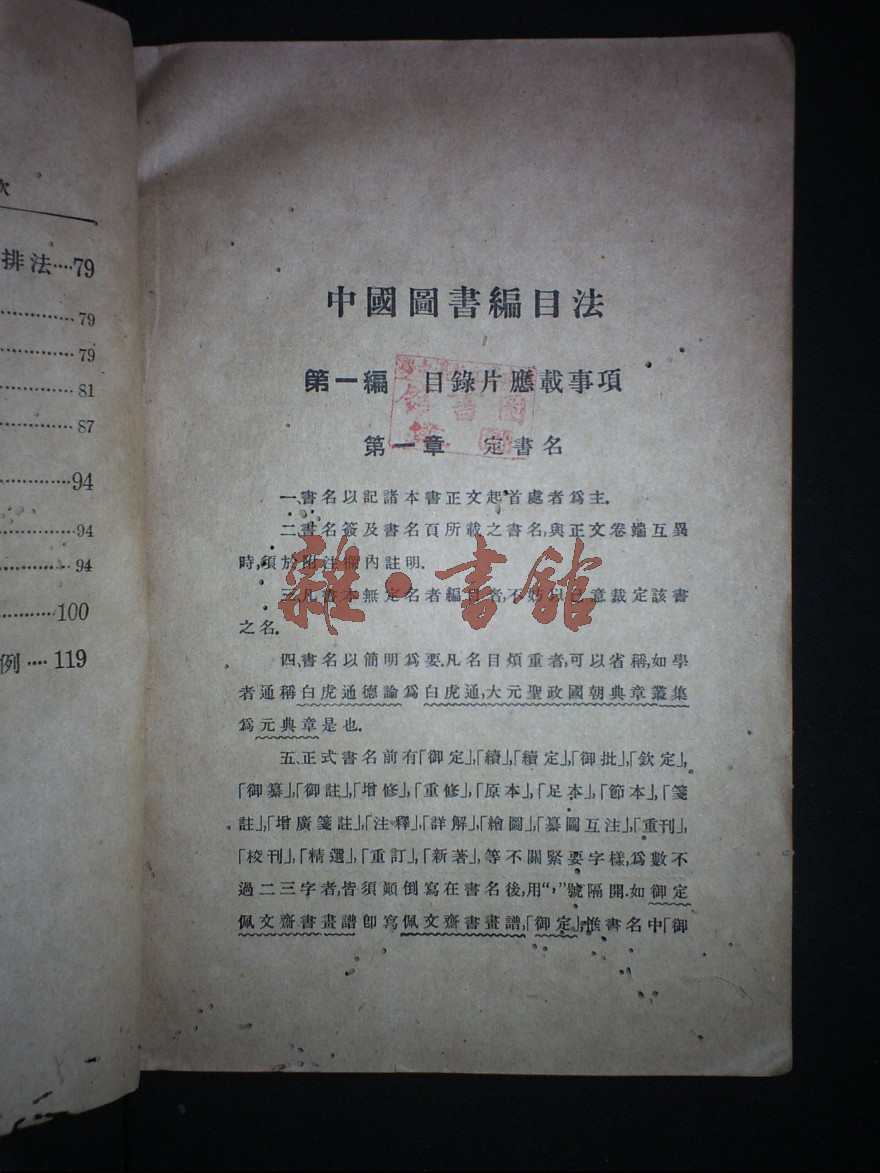 次
排法····79
79
79
81
87
94
94
94
100
例····119
中國圖書編目法
第一編 目錄片應載事項
第一章 定書名
一、書名以記諸本書正文起首處者爲主.
二、書名簽及書名頁所載之書名,與正文卷端互異
時,須於附注欄內註明.
三、凡書本無定名者,編目者,不妨以己意裁定該書
之名.
四、書名以簡明爲要.凡名目煩重者,可以省稱,如學
者通稱白虎通德論爲白虎通,大元聖政國朝典章叢集
爲元典章是也.
五、正式書名前有「御定」,「續」,「續定」,「御批」,「欽定」,
「御纂」,「御註」,「增修」,「重修」,「原本」,「足本」,「節本」,「箋
註」,「增廣箋註」,「注釋」,「詳解」,「繪圖」,「纂圖互注」,「重刊」,
「校刊」,「精選」,「重訂」,「新著」,等不關緊要字樣,爲數不
過二三字者,皆須顚倒寫在書名後,用“,”號隔開.如御定
佩文齋書畫譜卽寫佩文齋書畫譜,「御定」,惟書名中「御
雜·書館
圖書館